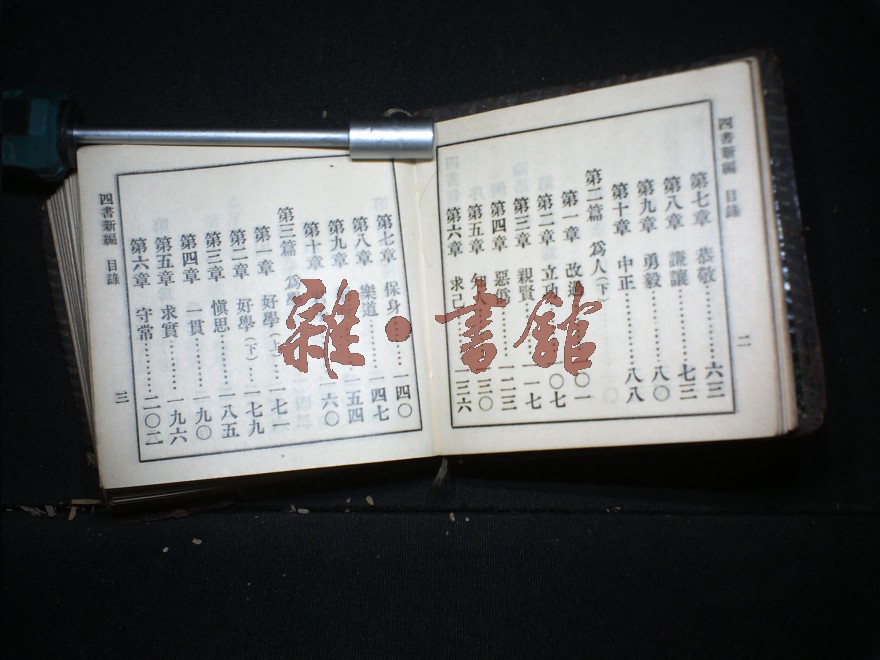 四書新編 目錄
二
第七章 恭敬 六三
第八章 謙讓 七三
第九章 勇毅 八〇
第十章 中正 八八
第二篇 為人(下)
第一章 改過 〇一
第二章 立功 〇七
第三章 親賢 一一七
第四章 惡 一二三
第五章 知人 一三〇
第六章 求己 一三六
第七章 保身 一四〇
第八章 樂道 一四七
第九章 一五四
第十章 一六〇
第三篇 為學
第一章 好學(上) 一七一
第二章 好學(下) 一七九
第三章 愼思 一八五
第四章 一貫 一九〇
第五章 求實 一九六
第六章 守常 二〇二
四書新編 目錄
三
雜·書館